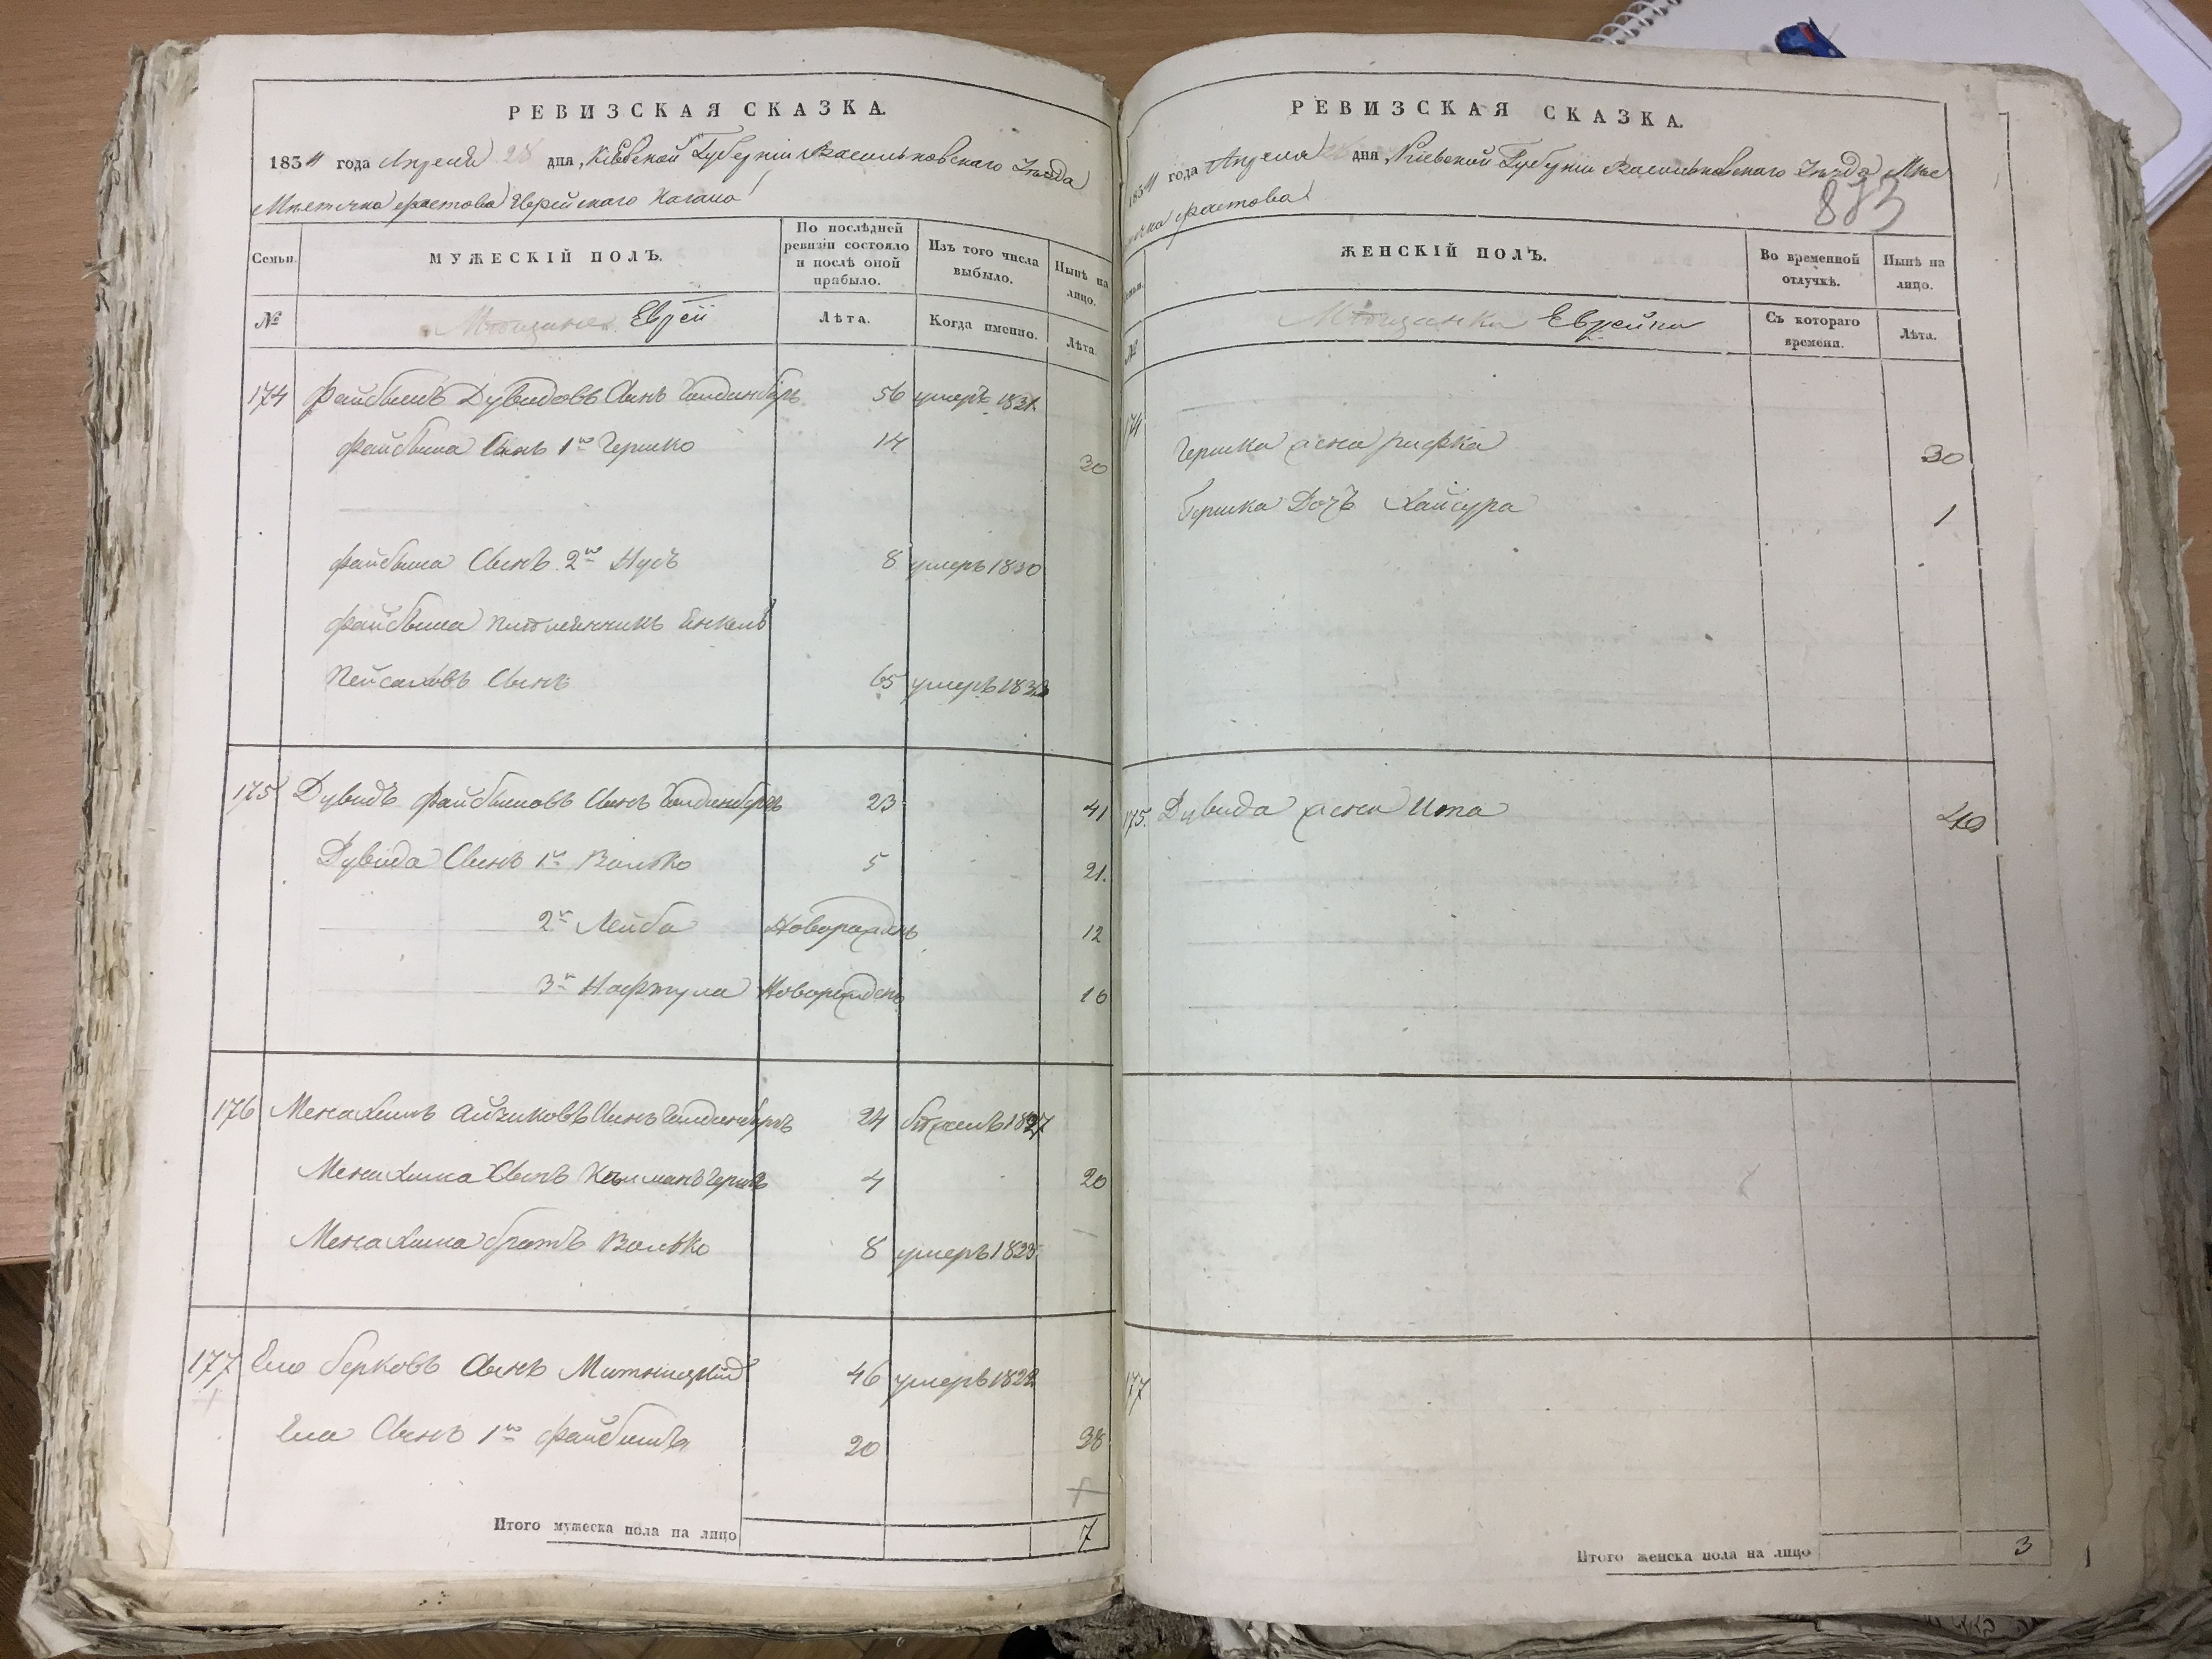 РЕВИЗСКАЯ СКАЗКА.
1834 года Апреля 28 дня, Кіевской Губерніи Васильковскаго Уезда
Мѣстечка Фастова Еврейскаго Кагала
Семьи.
МУЖЕСКІЙ ПОЛЪ.
По послѣдней ревизіи состояло и послѣ оной прибыло.
Изъ того числа выбыло.
Нынѣ на лицо.
№
Мѣщане Евреи
Лѣта.
Когда именно.
Лѣта.
174 Файбишъ Дувидовъ Сынъ Голденберъ 56 умеръ 1831.
Файбиша Сынъ 1й Гершко 14 30
Файбиша Сынъ 2й Нусъ 8 умеръ 1830
Файбиша племянникъ Янкель
Пейсаховъ Сынъ 65 умеръ 1833
175 Дувидъ Файбишовъ Сынъ Голденберъ 23 41
Дувида Сынъ 1й Волько 5 21.
2й Лейба Новорожденъ 12
3й Нафтула Новорожденъ 10
176 Менахимъ Айзиковъ Сынъ Голденберъ 24 бѣжалъ 1827
Менахима Сынъ Калманъ Гершъ 4 20
Менахима братъ Волько 8 умеръ 1825
177 Ель Берковъ Сынъ Митницкій 46 умеръ 1822
Еля Сынъ 1й Файбишъ 20 38
Итого мужеска пола на лицо 7
РЕВИЗСКАЯ СКАЗКА.
1834 года Апреля 28 дня, Кіевской Губерніи Васильковскаго Уезда Мѣс
течка Фастова
883
Семьи.
ЖЕНСКІЙ ПОЛЪ.
Во временной отлучкѣ.
Нынѣ на лицо.
№
Мѣщанки Еврейки
Съ котораго времени.
Лѣта.
174 Гершка жена Рифка 30
Гершка Дочъ Хайсура 1
175. Дувида жена Ита 40
177
Итого женска пола на лицо 3